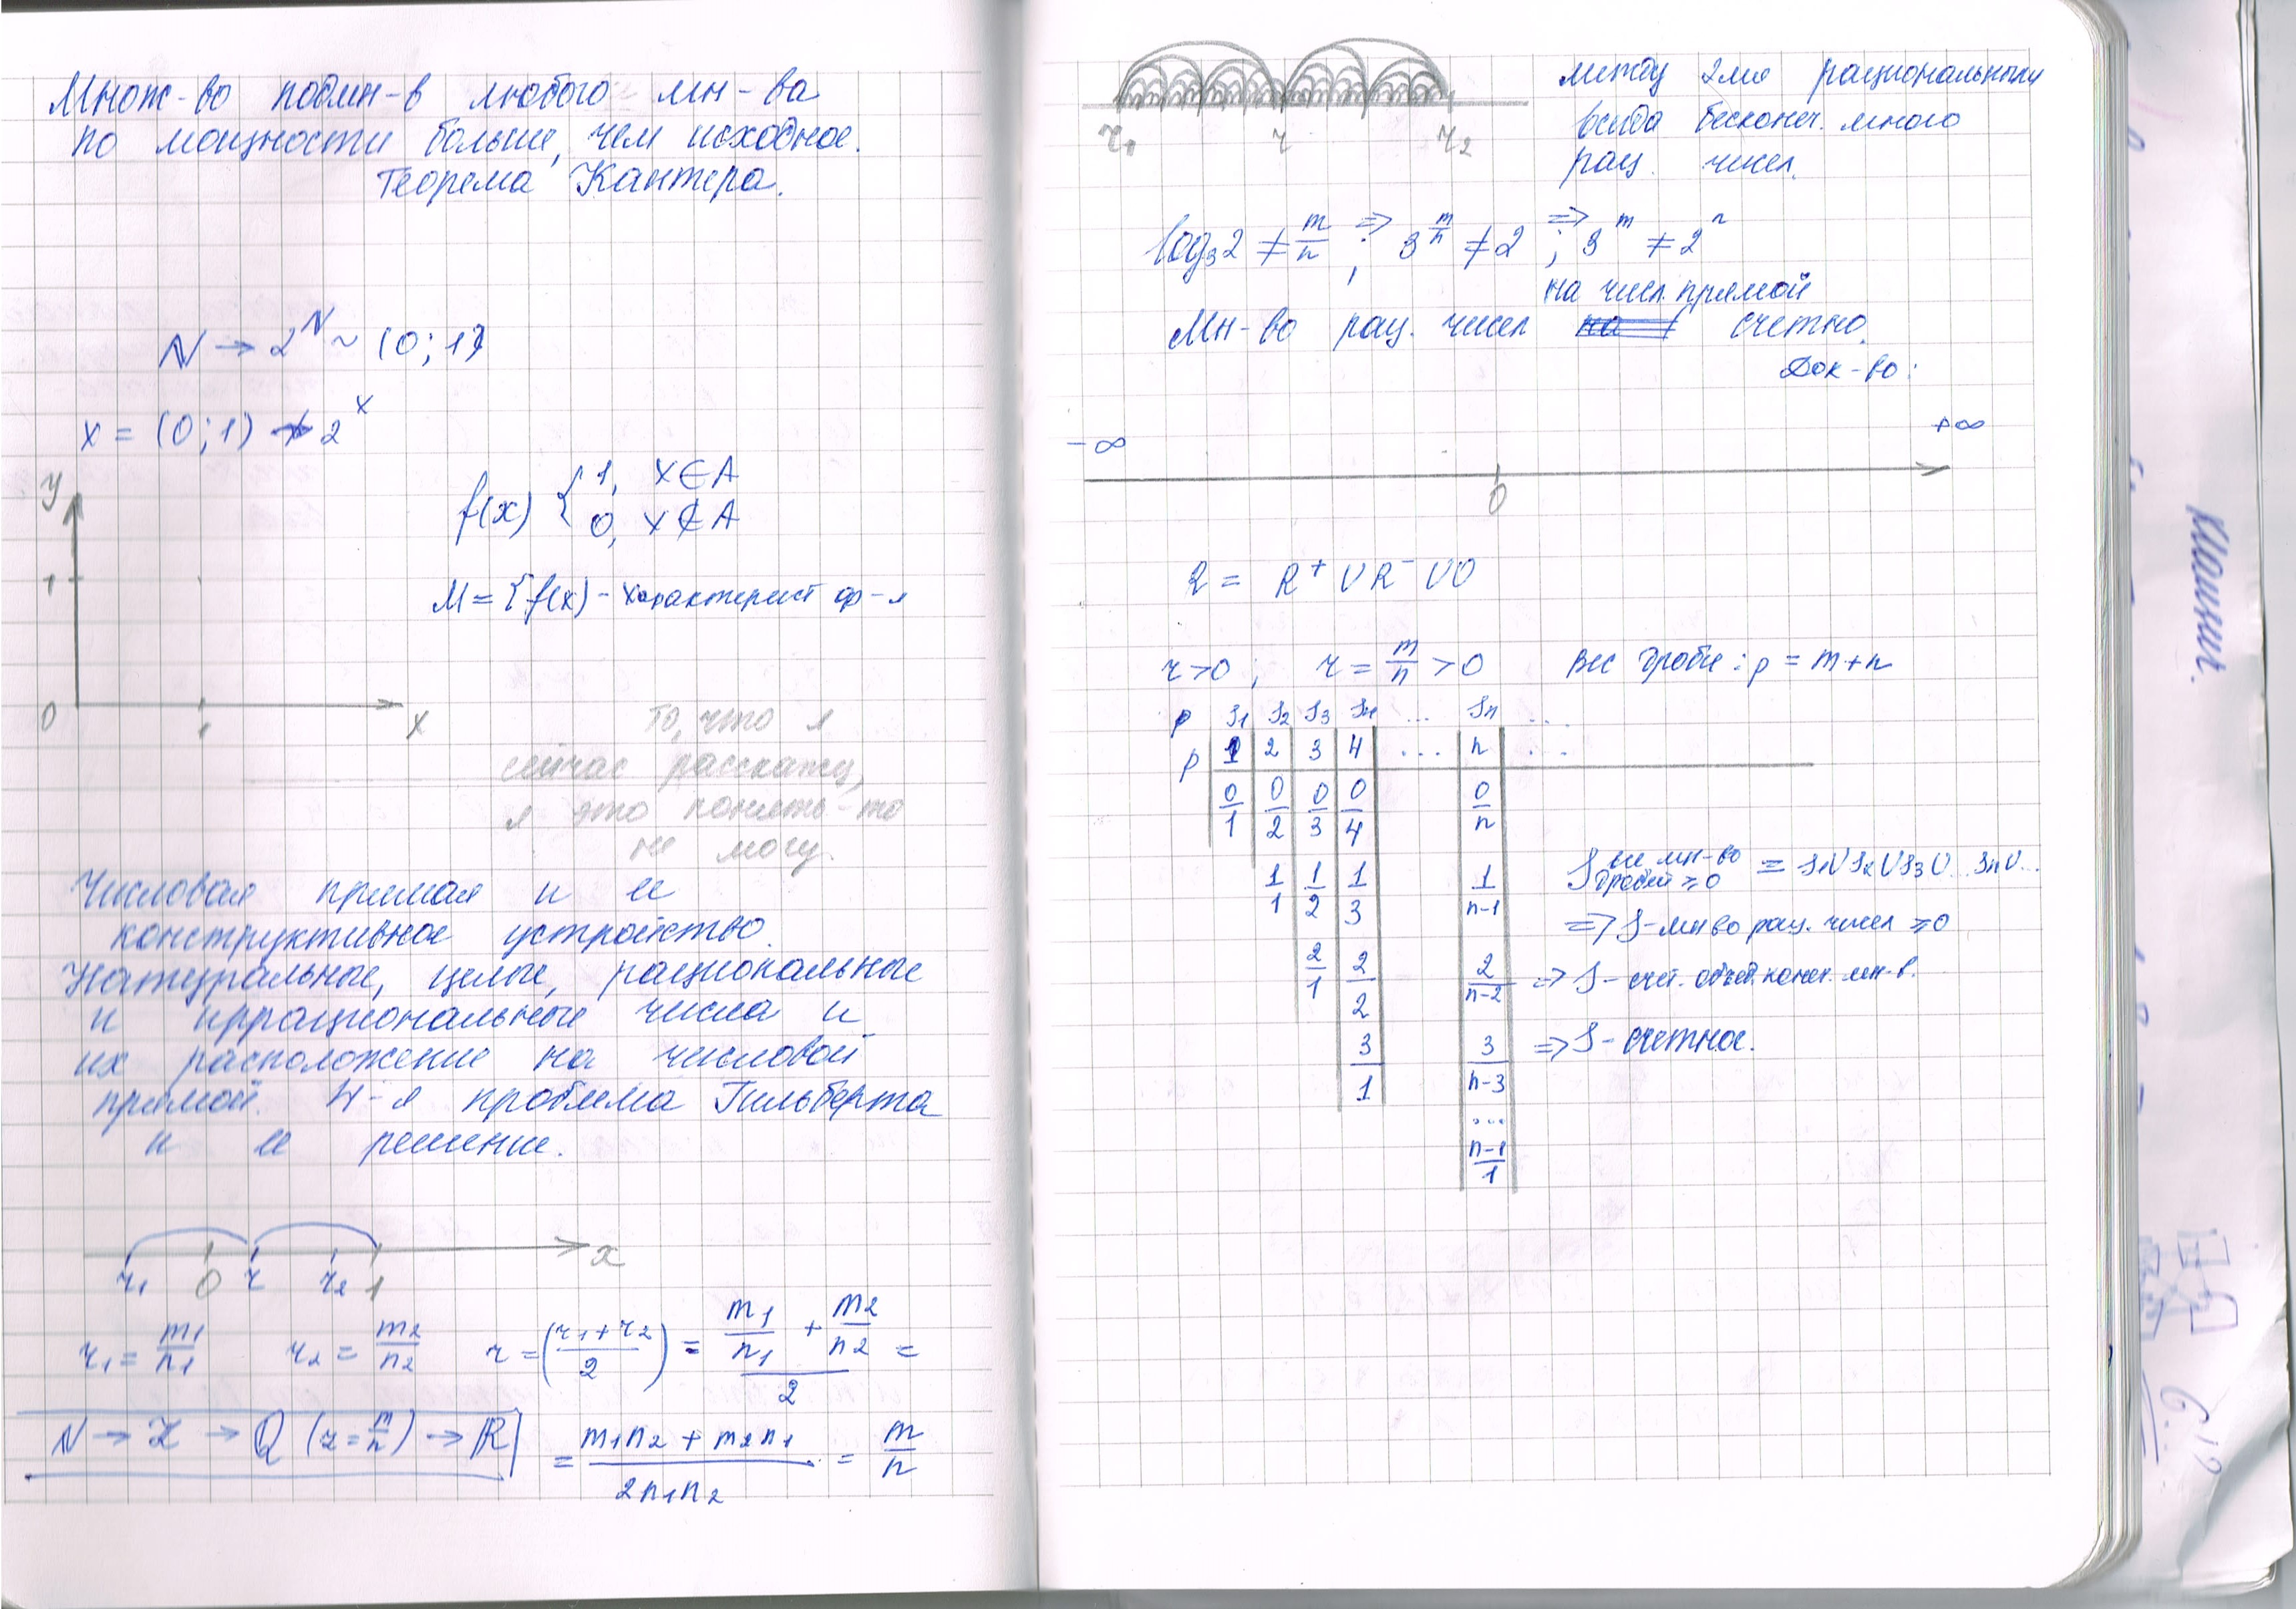 Множ-во подмн-в любого мн-ва
по мощности больше, чем исходное.
Теорема Кантера.
N → 2^N ~ (0;1)
x = (0;1) → 2^x
y
1
0
1
x
f(x) { 1, x∈A
0, x∉A
M = {f(x) - характерист ф-я
то, что я
сейчас расскажу,
я это понять-то
не могу.
Числовая прямая и ее
конструктивное устройство.
Натуральные, целые, рациональные
и иррациональные числа и
их расположение на числовой
прямой. 4-я проблема Гильберта
и ее решение.
r₁ 0 r r₂ 1 x
r₁ = m₁/n₁ r₂ = m₂/n₂ r = (r₁+r₂/2) = m₁/n₁ + m₂/n₂ / 2 =
N → Z → Q (r = m/n) → R
= m₁n₂ + m₂n₁ / 2n₁n₂ = m/n
r₁ r r₂
между 2мя рациональными
всегда бесконеч. много
рац. чисел.
log₃2 ≠ m/n ; ⇒ 3^(m/n) ≠ 2 ; ⇒ 3^m ≠ 2^n
на числ. прямой
Мн-во рац. чисел на счетно.
Док-во:
-∞ +∞
0
R = R⁺ ∪ R⁻ ∪ 0
r > 0 ; r = m/n > 0 Вес дроби: p = m+n
p S₁ S₂ S₃ S₄ ... Sn ...
p 1 2 3 4 ... n ...
0/1 0/2 0/3 0/4 0/n
1/1 1/2 1/3 1/n-1
2/1 2/2 2/n-2
3/1 3/n-3
...
n-1/1
S все мн-во дробей ≥0 = S₁∪S₂∪S₃∪...Sn∪...
=> S - мн во рац. чисел ≥ 0
=> S - счет. объед. конеч. мн-в.
=> S - счетное.